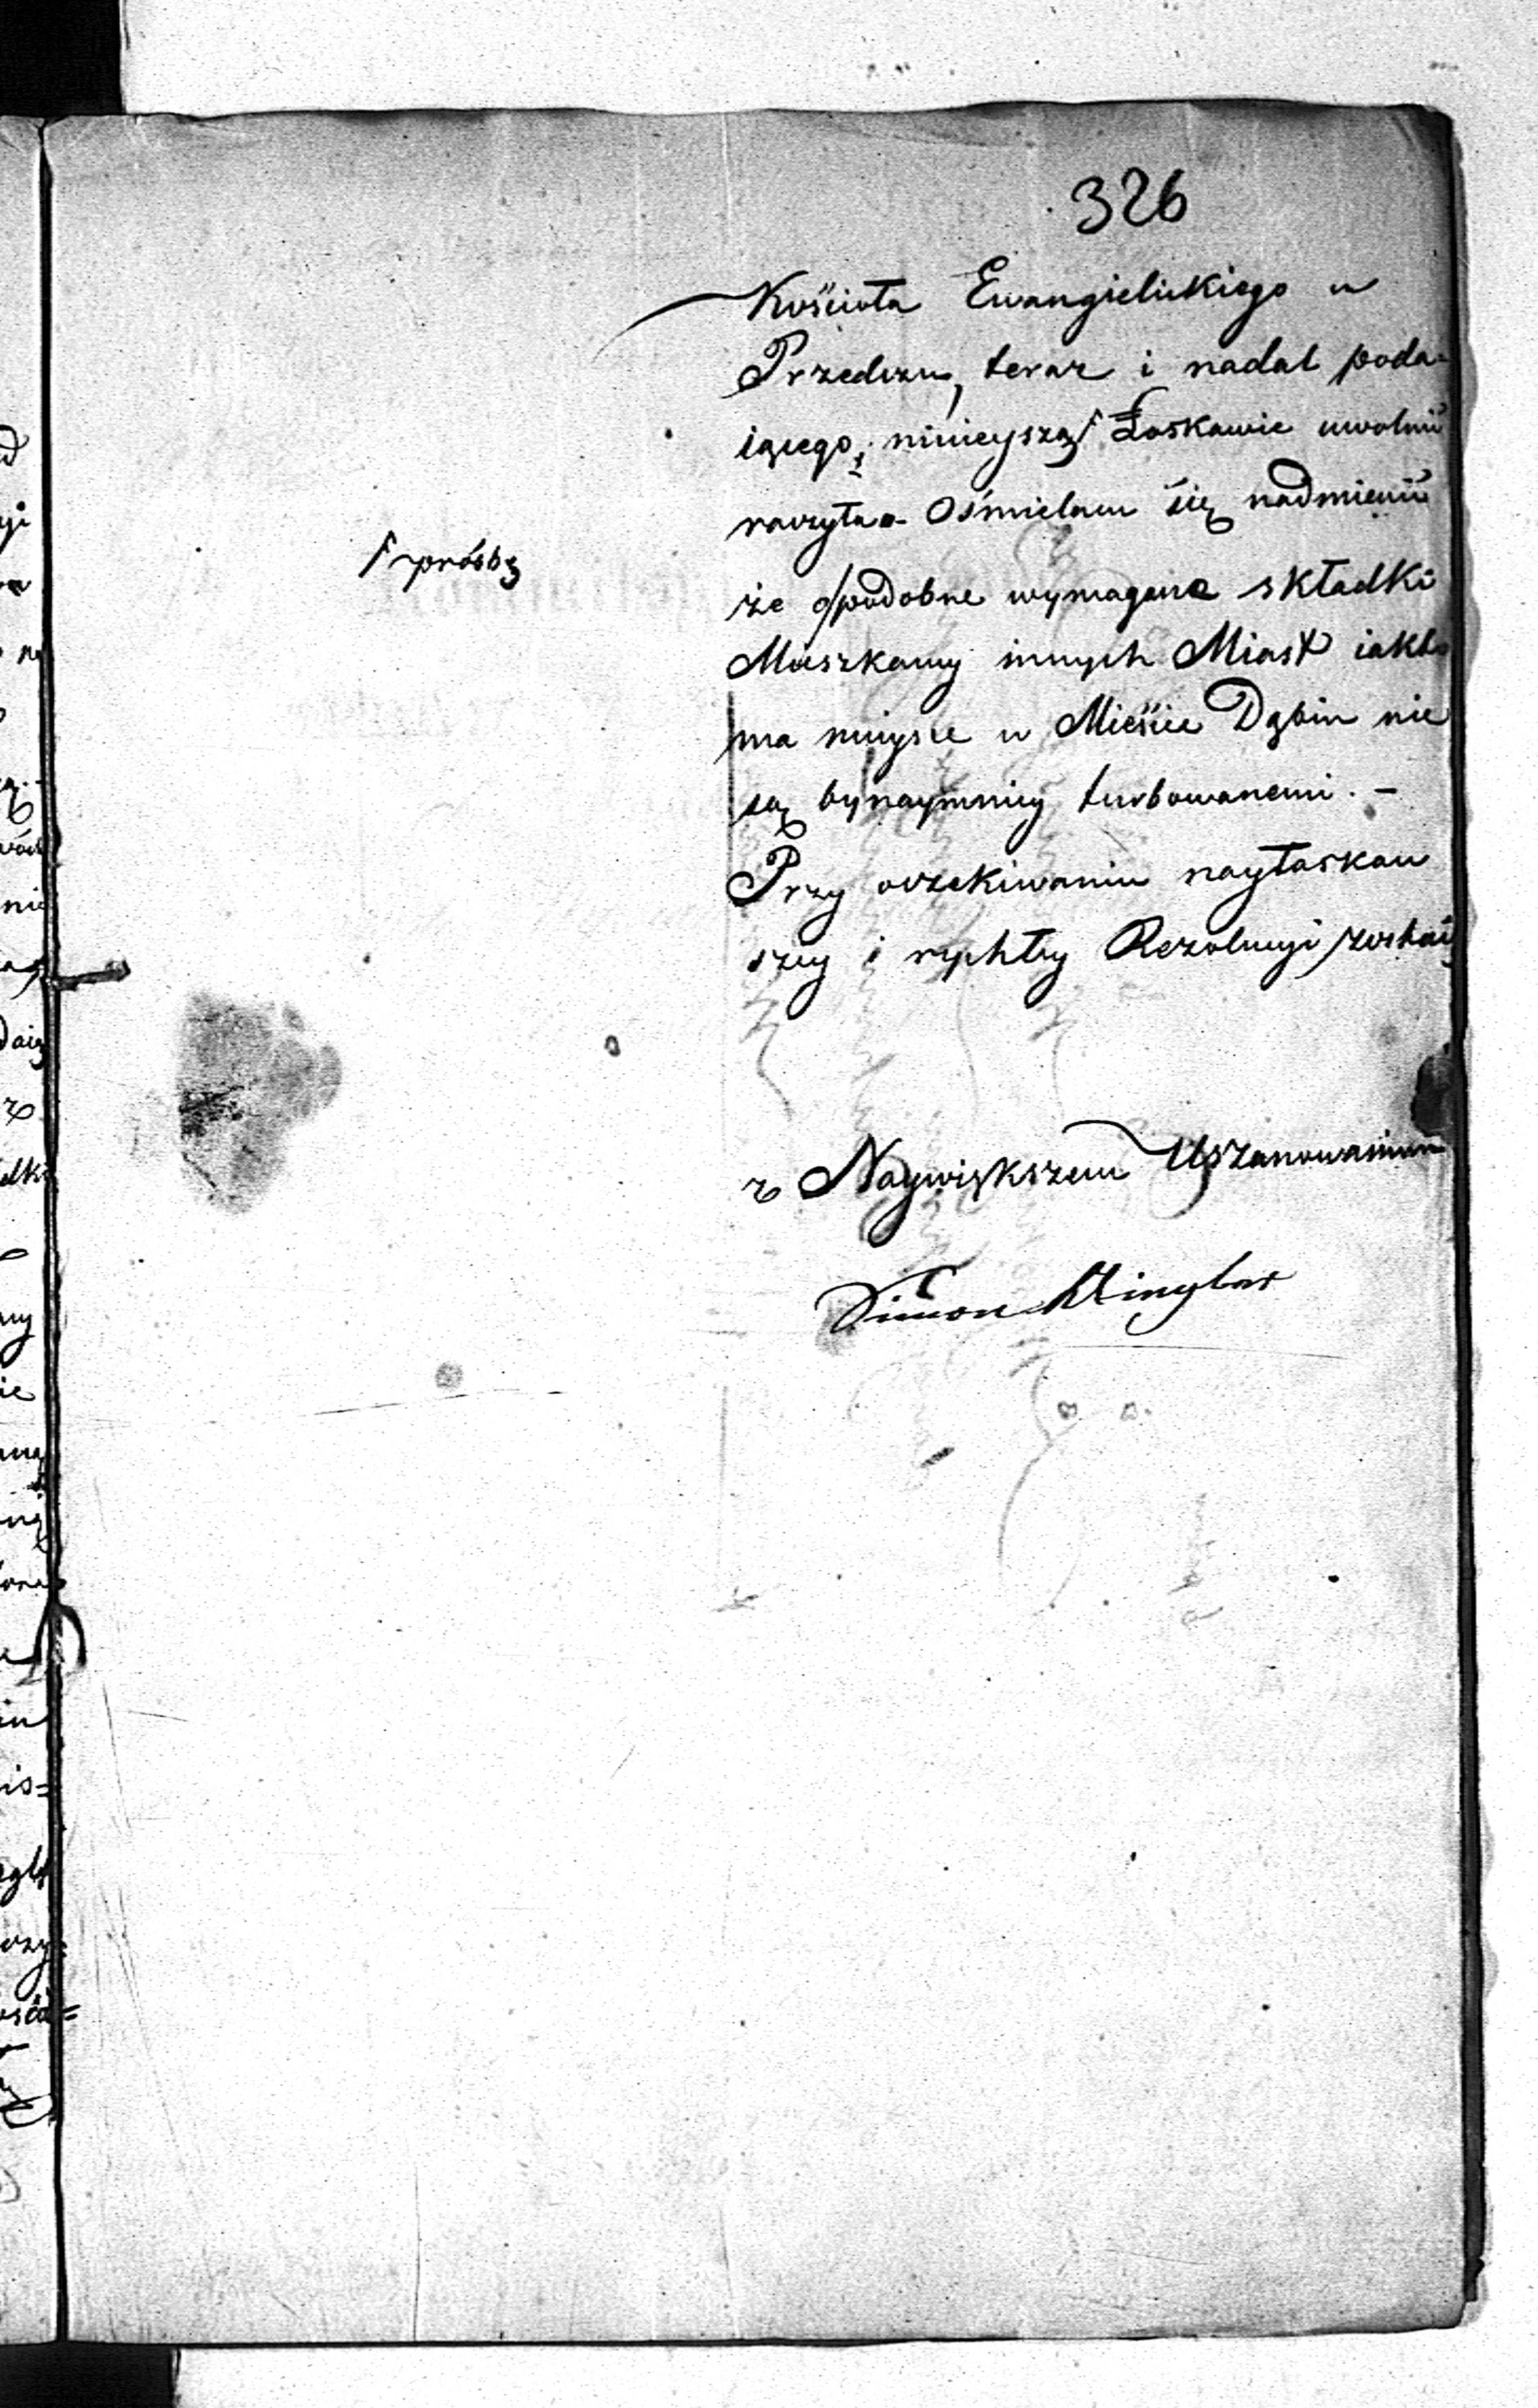 326
Kościoła Ewangielickiego w
Przedczu, teraz i nadal poda-
iącego, ninieyszą Łaskawie uwolnić
raczyła - Ośmielam się nadmienić
prośbą
że o podobne wymagane składki
Mieszkańcy innych Miast iakto
ma mieysce w Mieście Dąbiu nie
są bynaymniey turbowanemi. -
Przy oczekiwaniu nayłaskaw
szey i rychłey Rezolucyi zostaię
z Naywiększem Uszanowaniem
Simon